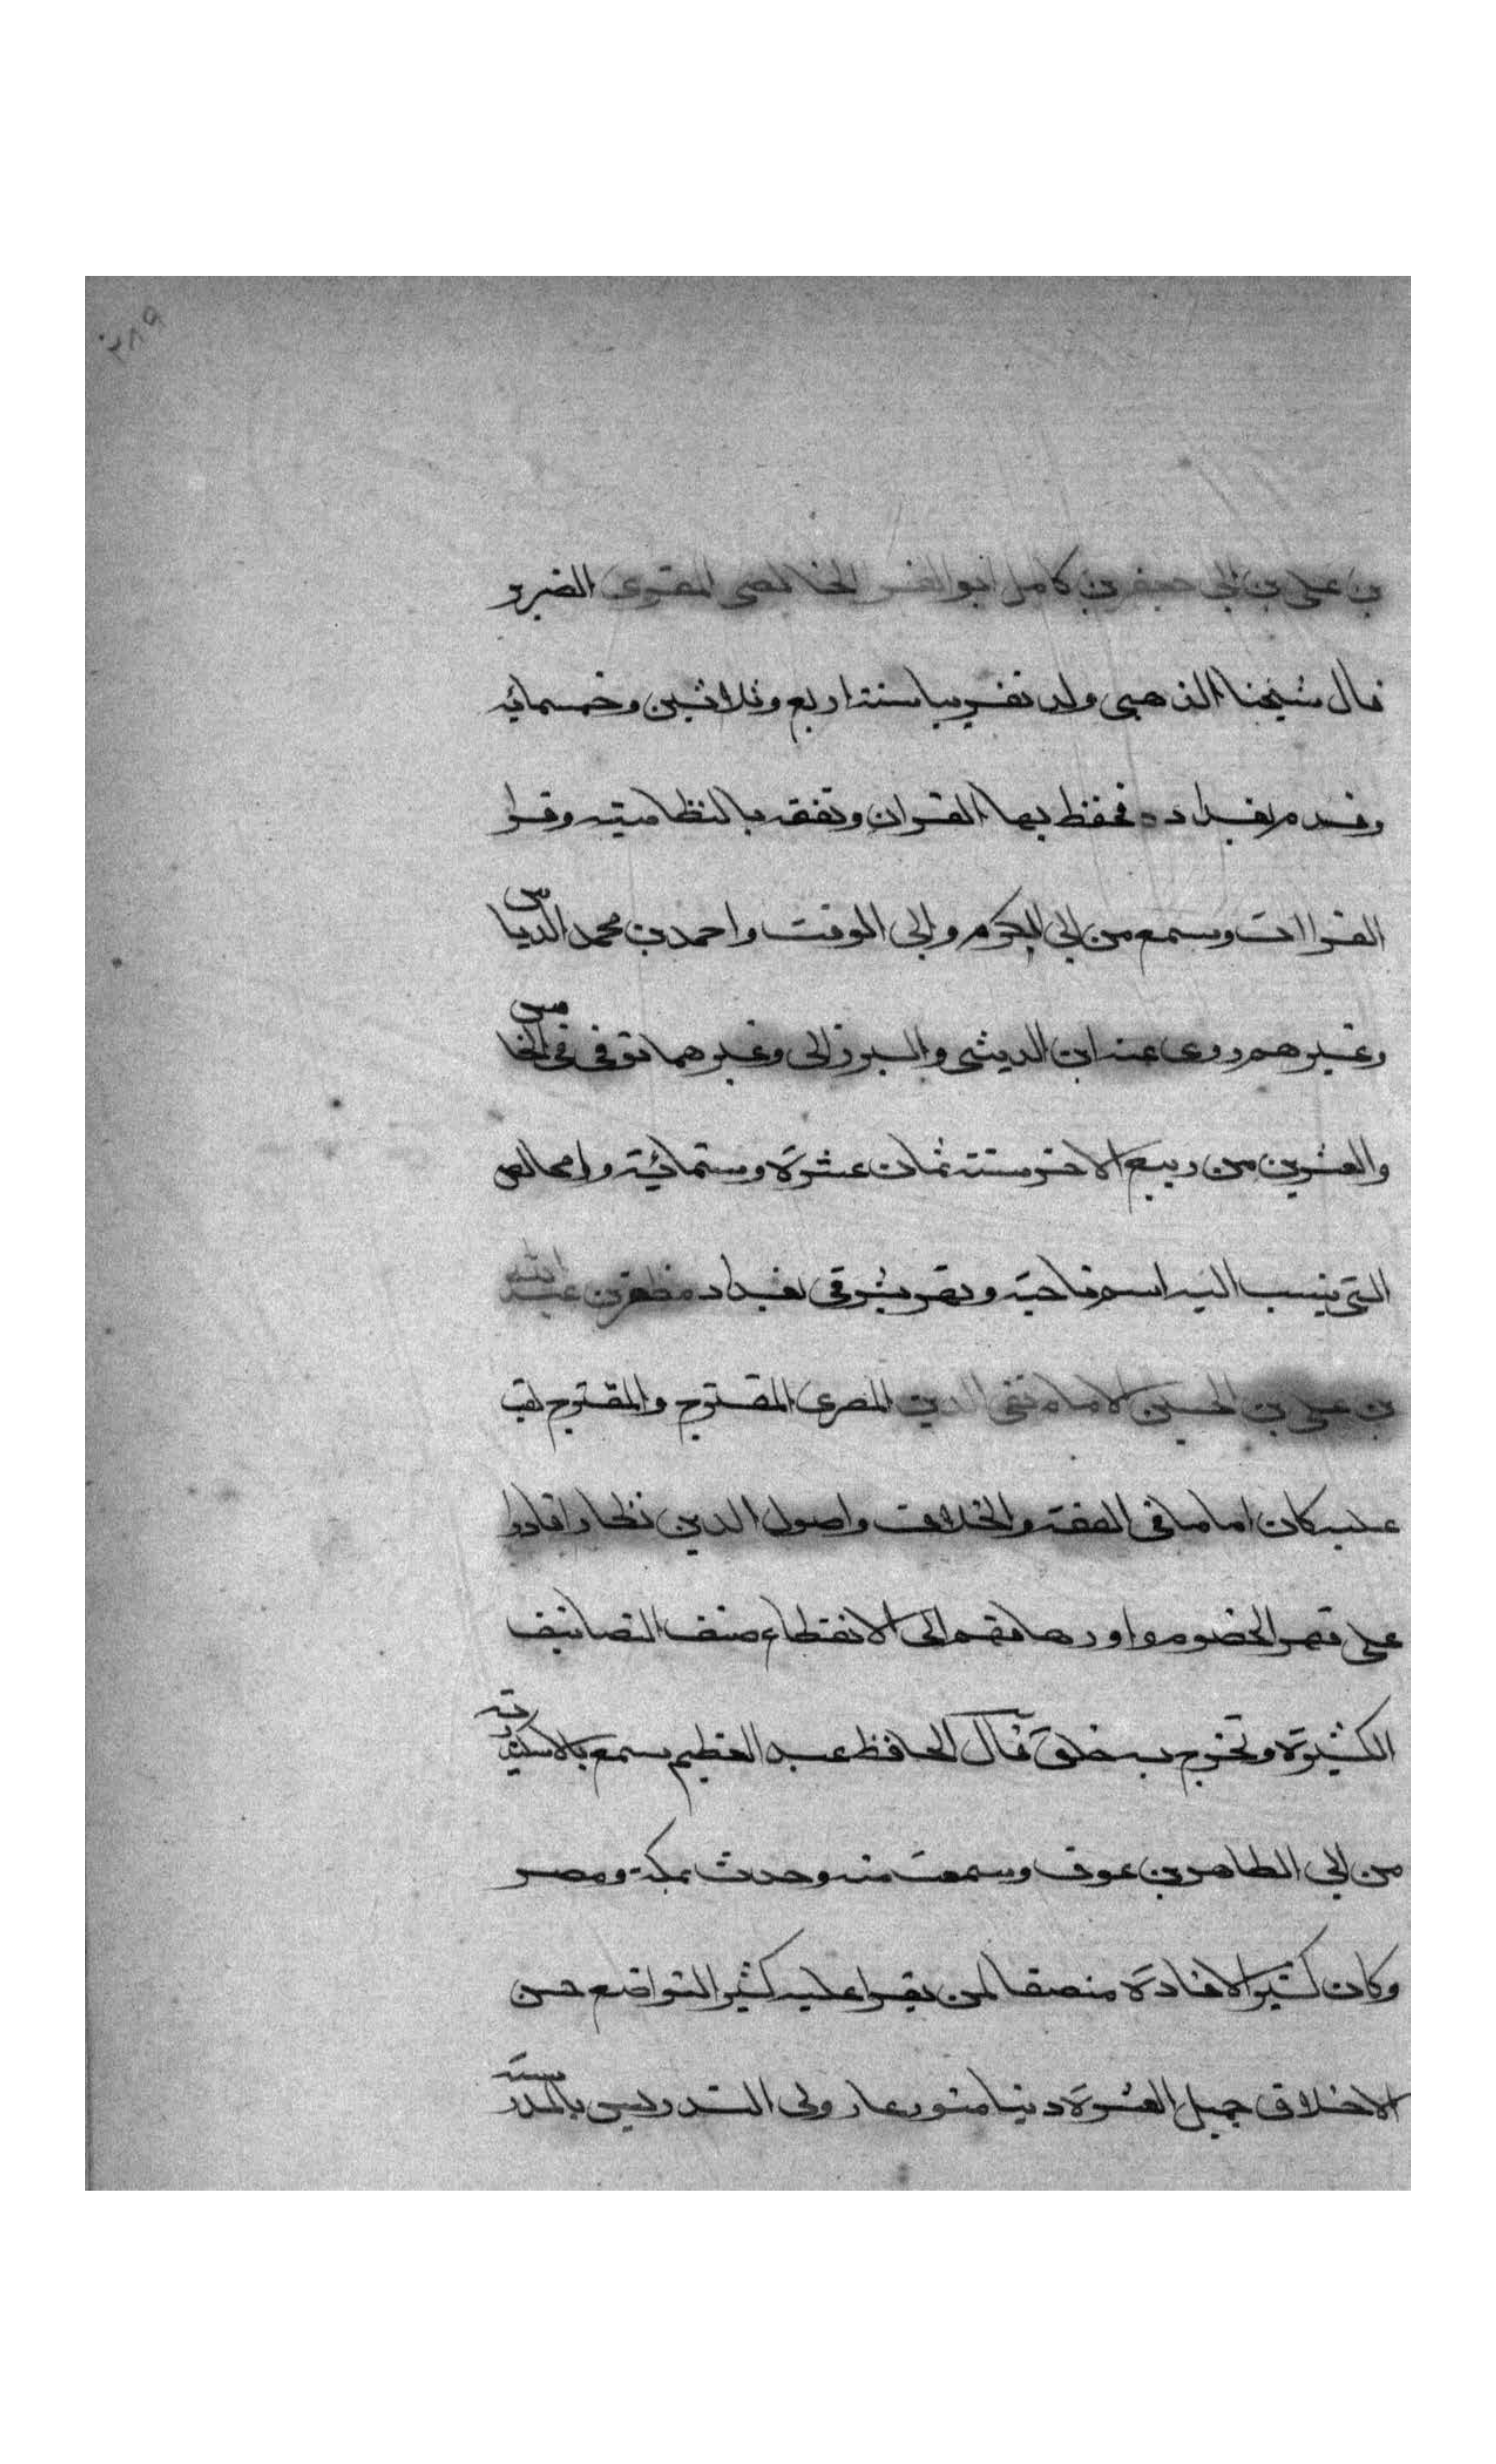 ٢٨٩
بن علي بن ابي جعفر بن كامل ابو الفتح الخالصي المقري الضرير
قال شيخنا الذهبي ولد تقريبا سنة اربع وثلاثين وخمسمائه
وقدم بغداد فحفظ بها القران وتفقه بالنظاميه وقرا
القراات وسمع من ابي الكرم وابي الوقت واحمد بن محمد الدباس
وغيرهم روى عنه ابن الدبيثي والبرزالي وغيرهما توفي في الخامس
والعشرين من ربيع الاخر سنة ثمان عشرة وستمائة والخالص
التي ينسب اليه اسم ناحية ونهر بشرقي بغداد مظفر بن عبد الله
بن علي بن الحسين الامام تقي الدين المصري المقترح والمقترح لقب
عليه كان اماما في الفقه والخلاف واصول الدين نظارا قادرا
على قهر الخصوم و الى الانقطاع صنف التصانيف
الكثيرة وتخرج به خلق قال الحافظ عبد العظيم سمع بالاسكندرية
من ابي الطاهر بن عوف وسمعت منه وحدث بمكة ومصر
وكان كثير الافادة منصفا لمن يقرا عليه كثير التواضع حسن
الاخلاق جميل العشرة دينا متورعا ولي التدريس بالمدرسة